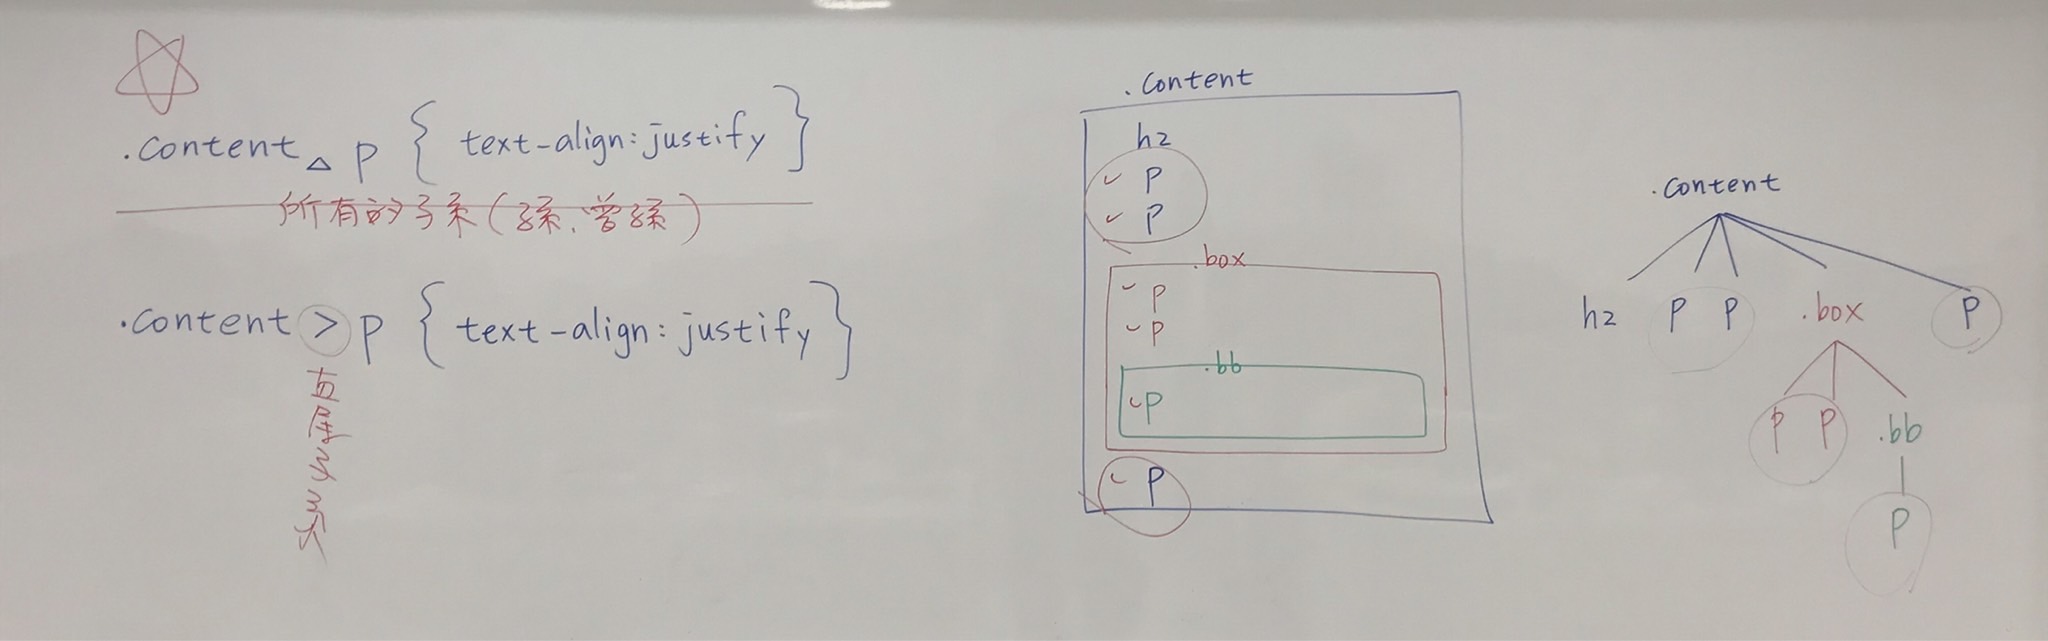 .content△ p { text-align:justify }
所有的子系(孫、曾孫)
.content > p { text-align:justify }
直屬
.content
h2
✓ p
✓ p
.box
✓ p
✓ p
.bb
✓ p
✓ p
.content
h2 p p .box p
p p .bb
p